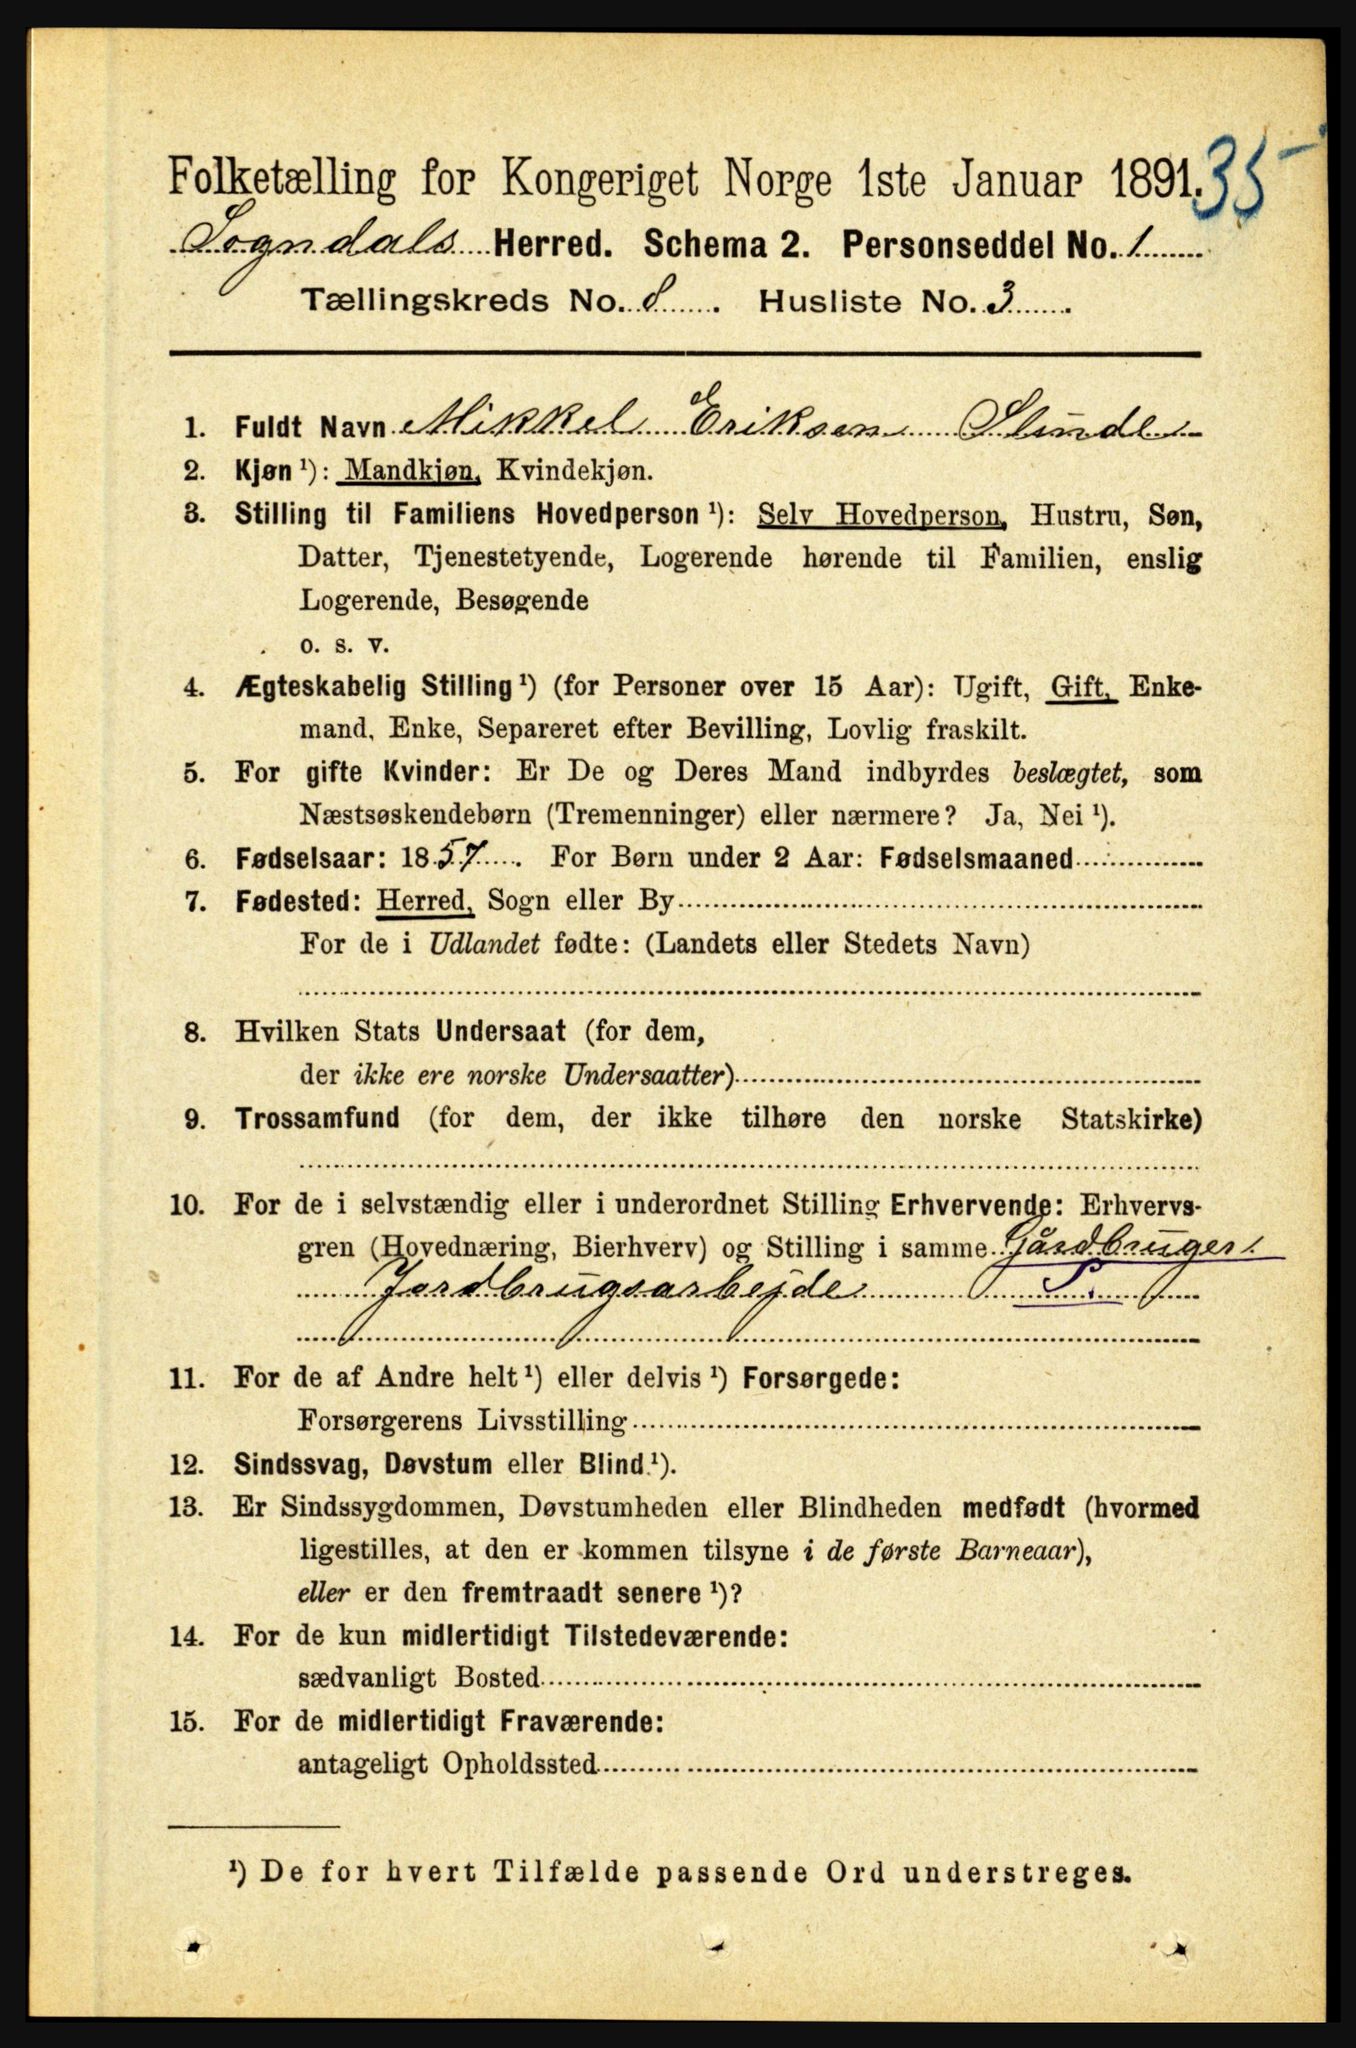 Folketælling for Kongeriget Norge 1ste Januar 1891. 35
Sogndals Herred. Schema 2. Personseddel No. 1
Tællingskreds No. 8. Husliste No. 3.
1. Fuldt Navn Mikkel Eriksen Slinde
2. Kjøn ¹): Mandkjøn, Kvindekjøn.
3. Stilling til Familiens Hovedperson ¹): Selv Hovedperson, Hustru, Søn,
Datter, Tjenestetyende, Logerende hørende til Familien, enslig
Logerende, Besøgende
o. s. v.
4. Ægteskabelig Stilling ¹) (for Personer over 15 Aar): Ugift, Gift, Enke-
mand, Enke, Separeret efter Bevilling, Lovlig fraskilt.
5. For gifte Kvinder: Er De og Deres Mand indbyrdes beslægtet, som
Næstsøskendebørn (Tremenninger) eller nærmere? Ja, Nei ¹).
6. Fødselsaar: 1857. For Børn under 2 Aar: Fødselsmaaned
7. Fødested: Herred, Sogn eller By
For de i Udlandet fødte: (Landets eller Stedets Navn)
8. Hvilken Stats Undersaat (for dem,
der ikke ere norske Undersaatter)
9. Trossamfund (for dem, der ikke tilhøre den norske Statskirke)
10. For de i selvstændig eller i underordnet Stilling Erhvervende: Erhvervs-
gren (Hovednæring, Bierhverv) og Stilling i samme Gårdbruger
Jordbrugsarbejde S.
11. For de af Andre helt ¹) eller delvis ¹) Forsørgede:
Forsørgerens Livsstilling
12. Sindssvag, Døvstum eller Blind ¹).
13. Er Sindssygdommen, Døvstumheden eller Blindheden medfødt (hvormed
ligestilles, at den er kommen tilsyne i de første Barneaar),
eller er den fremtraadt senere ¹)?
14. For de kun midlertidigt Tilstedeværende:
sædvanligt Bosted
15. For de midlertidigt Fraværende:
antageligt Opholdssted
¹) De for hvert Tilfælde passende Ord understreges.